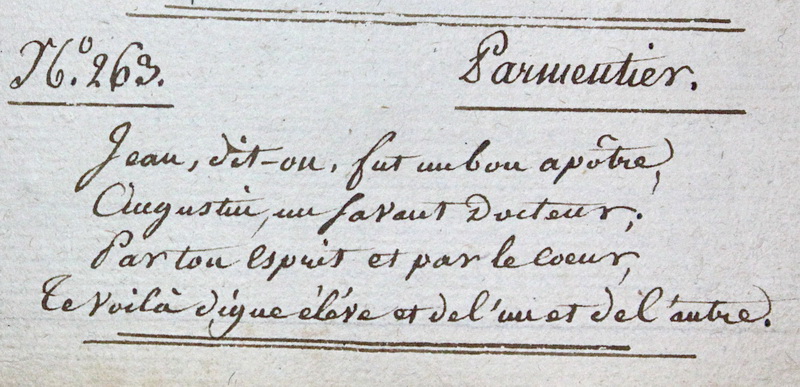 N.º 263.
Parmentier.
Jean, dit-on, fut un bon apôtre,
Augustin, un savant Docteur;
Par ton esprit et par le coeur,
Te voilà digne élève et de l'un et de l'autre.